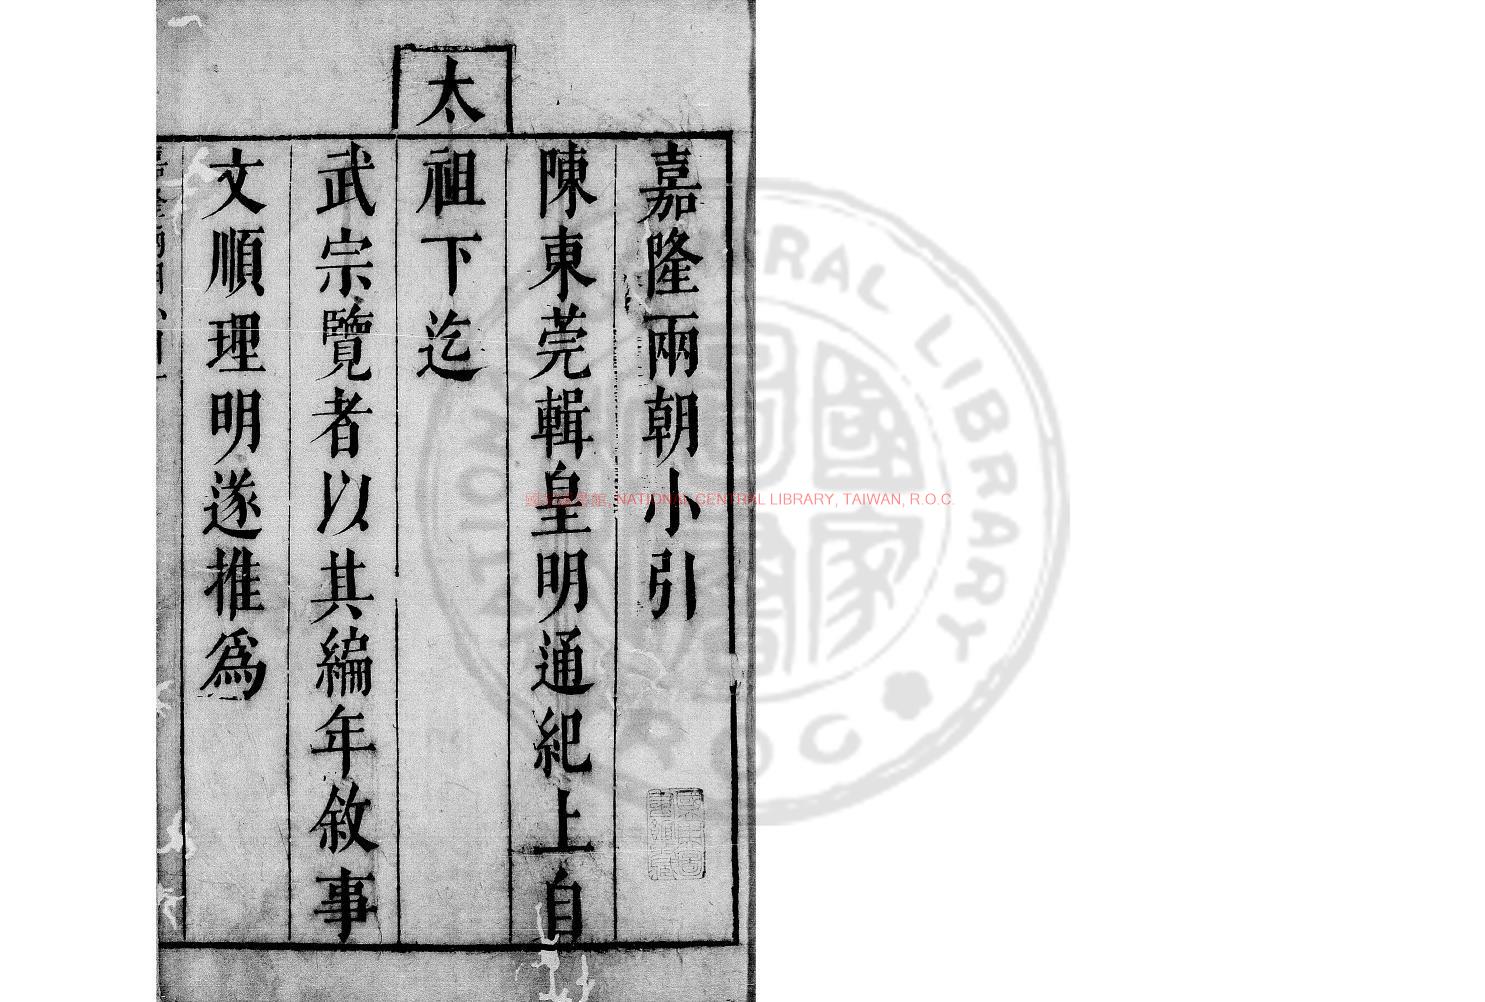 嘉隆兩朝小引
陳東莞輯皇明通紀上自
太祖下迄
武宗覽者以其編年敘事
文順理明遂推爲
NATIONAL CENTRAL LIBRARY, TAIWAN, R.O.C.